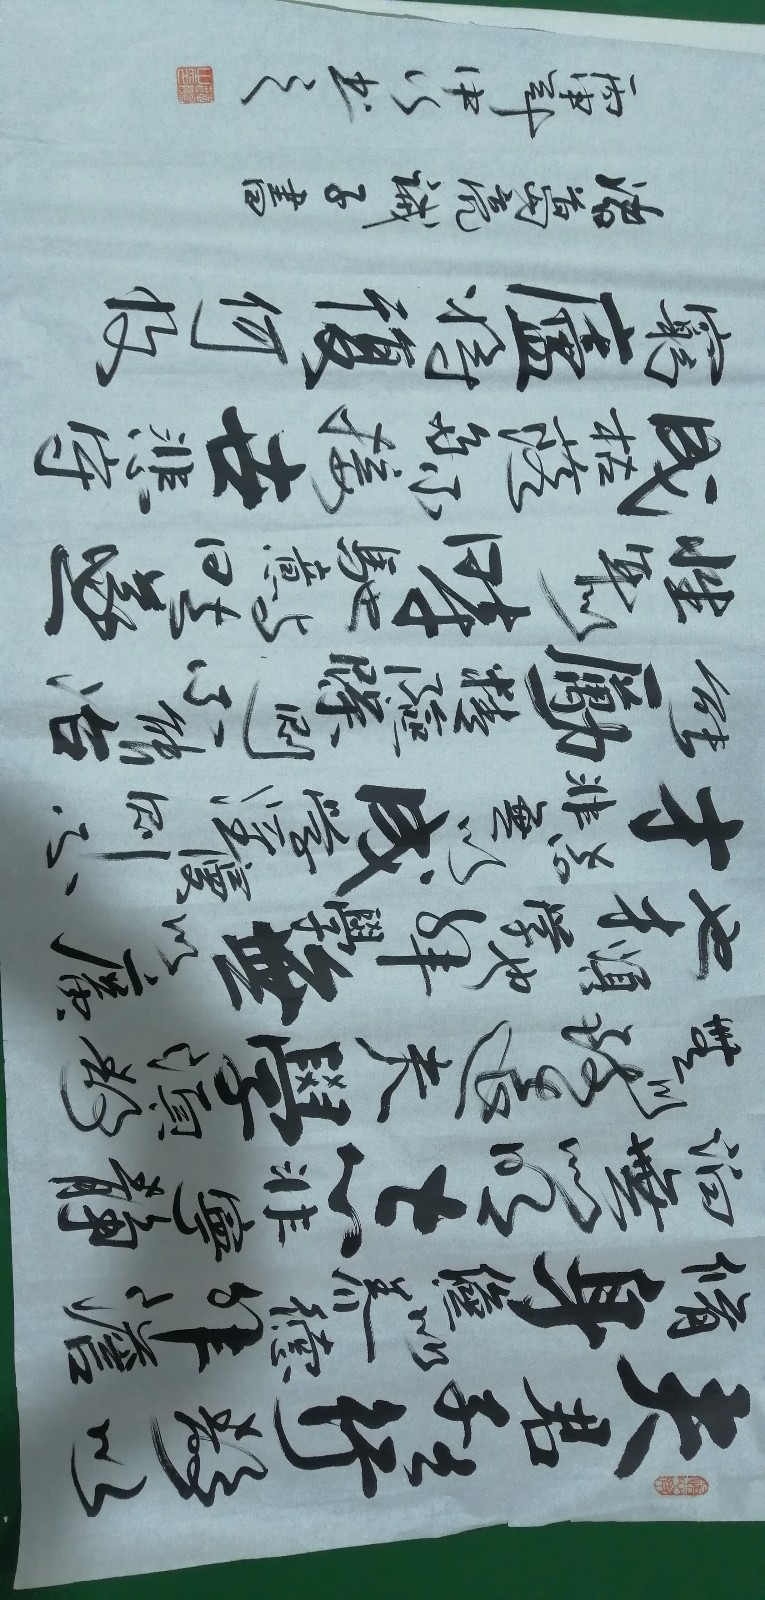 夫君子之行静以
修身儉以養德非澹
泊無以明志非寧靜
無以致遠夫學須静
也才須學也非學無以廣
才非志無以成學淫慢則不
能勵精險躁則不能治
性年与時馳意与日去遂
成枯落多不接世悲守
窮廬將復何及
諸葛亮誡子書